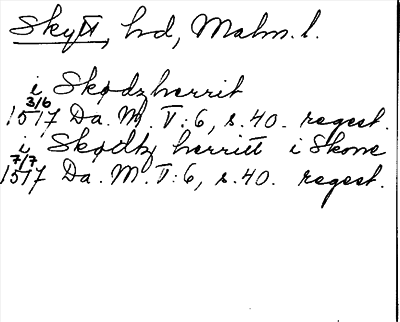 Skytt, hd, Malm. l.
i Skødzherrit
3/6
1517 Da. M. V:6, s. 40. regest.
i Skødtz herritt i Skone
7/7
1517 Da. M. V:6, s. 40. regest.